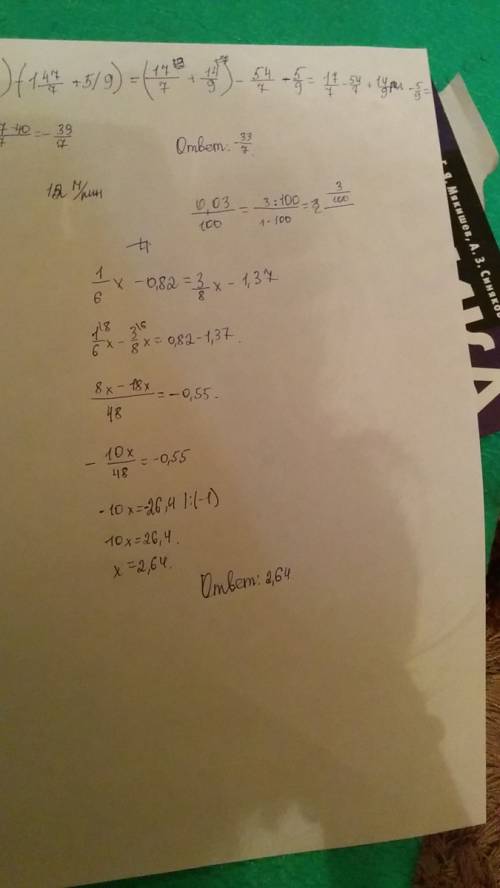 ) - (1 47/7 + 5/9) = (17/7 + 14/9) - 54/7 - 5/9 = 17/7 - 54/7 + 14/9 - 5/9 =
7-40/7 = - 39/7
Ответ: - 33/7
152 м/мин
0,03/100 = 3:100/1·100 = 3/100
1/6 x - 0,82 = 3/8 x - 1,37
1/6 x - 3/8 x = 0,82 - 1,37.
8x - 18x/48 = -0,55.
- 10x/48 = -0,55
-10x = -26,4 |:(-1)
10x = 26,4.
x = 2,64.
Ответ: 2,64.
Г. Я. Мякишев, А. З. Синяков